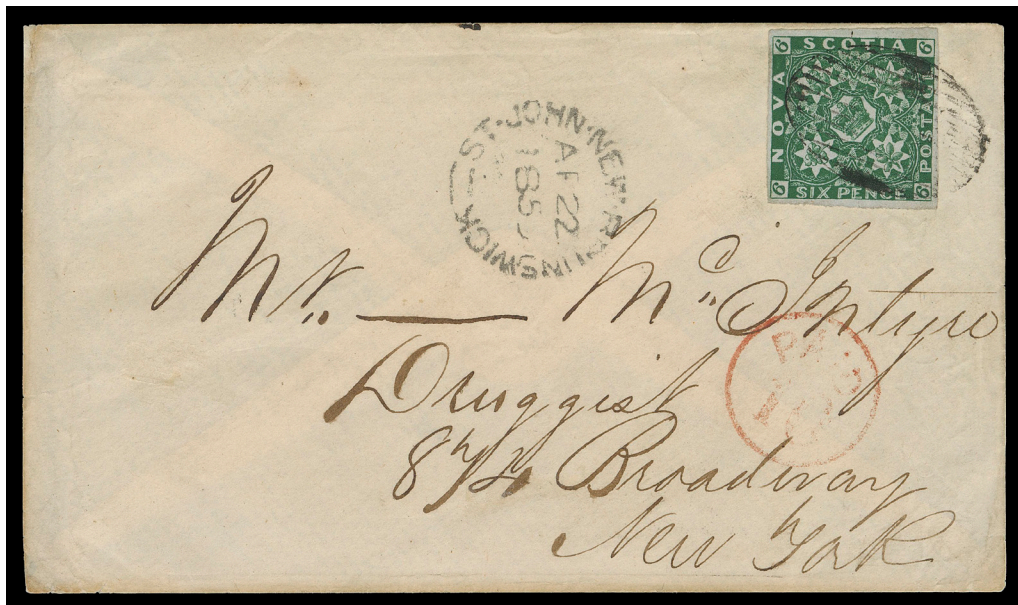 6 SCOTIA 6
NOVA
POSTAGE
6 SIX PENCE 6
ST. JOHN · NEW · BRUNSWICK
AP 22
185
PAID
Mr. — Mc Intyre
Druggist
874 Broadway
New York